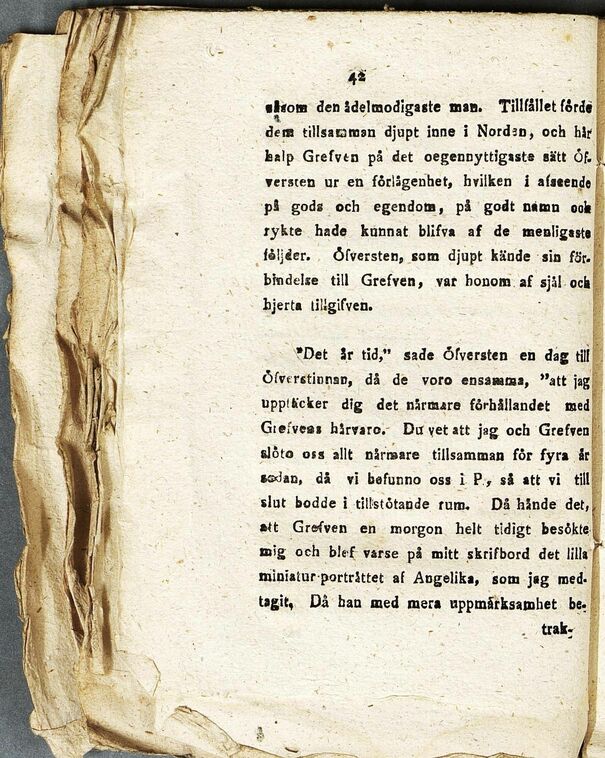 42
såsom den ädelmodigaste man. Tillfället förde
dem tillsamman djupt inne i Norden, och här
halp Grefven på det oegennyttigaste sätt Öf-
versten ur en förlägenhet, hvilken i afseende
på gods och egendom, på godt namn och
rykte hade kunnat blifva af de menligaste
följder. Öfversten, som djupt kände sin för-
bindelse till Grefven, var honom af själ och
hjerta tillgifven.
"Det är tid," sade Öfversten en dag till
Öfverstinnan, då de voro ensamma, "att jag
upptäcker dig det närmare förhållandet med
Grefvens härvaro. Du vet att jag och Grefven
slöto oss allt närmare tillsamman för fyra år
sedan, då vi befunno oss i P., så att vi till
slut bodde i tillstötande rum. Då hände det,
att Grefven en morgon helt tidigt besökte
mig och blef varse på mitt skrifbord det lilla
miniatur-porträttet af Angelika, som jag med-
tagit. Då han med mera uppmärksamhet be-
trak-